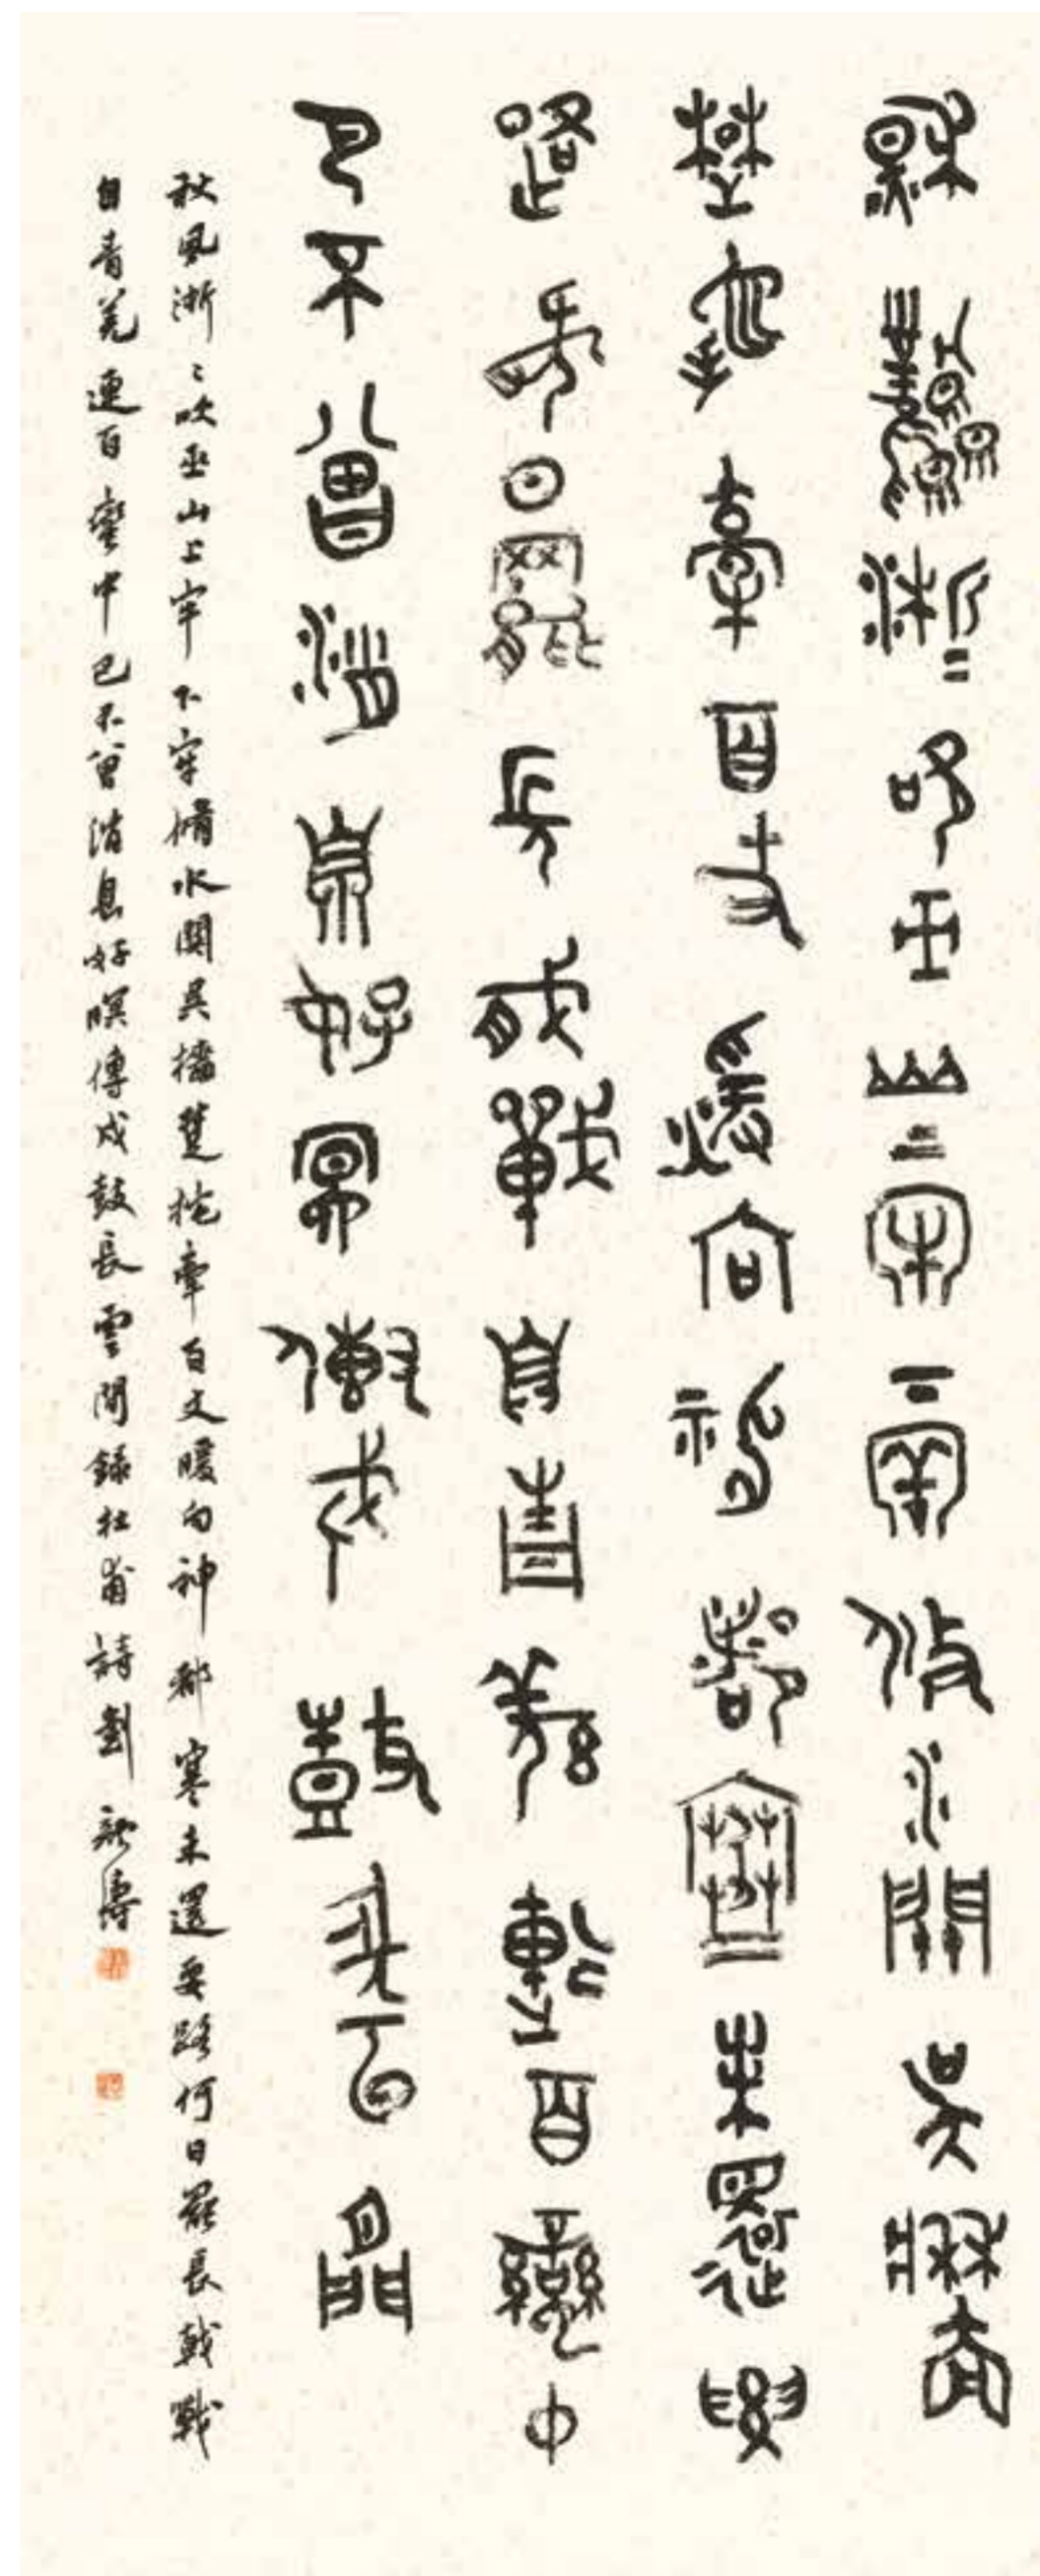 秋風淅〻吹巫山上牢下牢修水關吳檣
楚柁牽百丈暖向神都寒未還要
路何日罷長戟戰自青羌連百蠻中
巴不曾消息好冥傳戍鼓長雲間
秋風淅〻吹巫山上牢下牢脩水關吳檣楚柁牽百丈暖向神都寒未還要路何日罷長戟戰
自青羌連百蠻中巴不曾消息好暝傳戍鼓長雲間錄杜甫詩劉